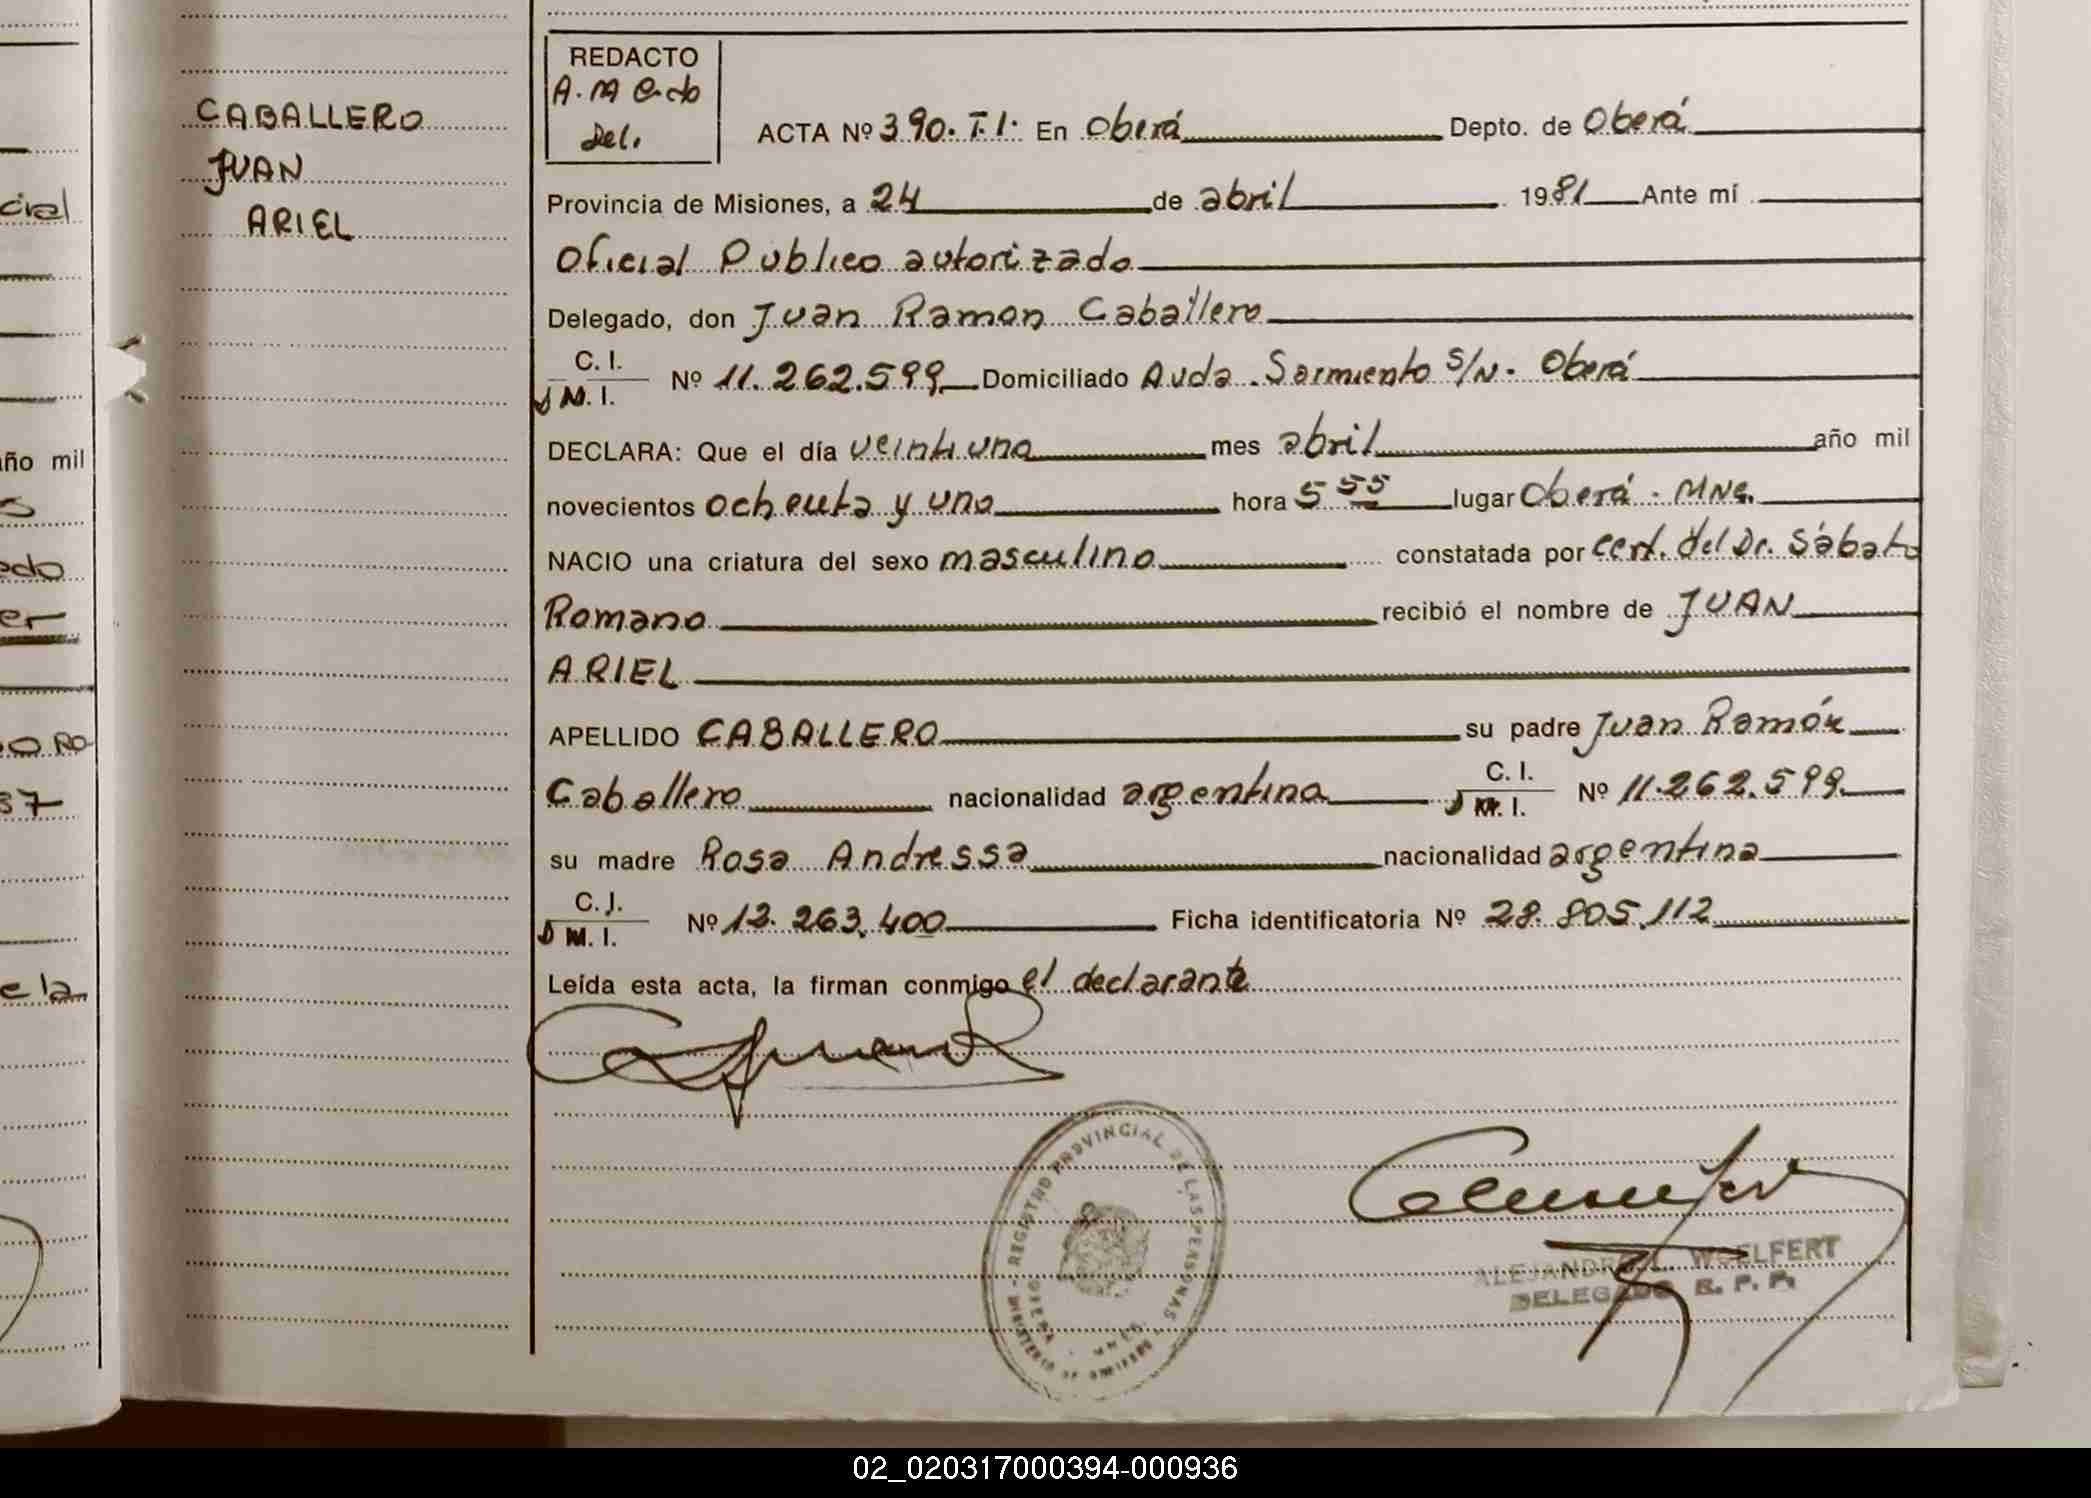 cial
año mil
s
edo
er
O RO
37
e la
CABALLERO
JUAN
ARIEL
REDACTO
Del.
ACTA Nº 390. T.I. En Oberá Depto. de Oberá
Provincia de Misiones, a 24 de abril 1981 Ante mí
Oficial Publico autorizado
Delegado, don Juan Ramon Caballero
C. I.
D M. I. Nº 11.262.599 Domiciliado Avda. Sarmiento S/N. Oberá
DECLARA: Que el día veintiuno mes abril año mil
novecientos ochenta y uno hora 5 55 lugar Oberá. Mnes.
NACIO una criatura del sexo masculino constatada por cert. del Dr. Sábato
Romano recibió el nombre de JUAN
ARIEL
APELLIDO CABALLERO su padre Juan Ramón
Caballero nacionalidad argentina C. I.
D M. I. Nº 11.262.599.
su madre Rosa Andressa nacionalidad argentina
C. I.
D M. I. Nº 12.263.400 Ficha identificatoria Nº 28.805.112
Leída esta acta, la firman conmigo el declarante
MINISTERIO DE GOBIERNO - REGISTRO PROVINCIAL DE LAS PERSONAS
OBERA - MNES.
ALEJANDRO WOELFERT
DELEGADO R. P. P.
02_020317000394-000936